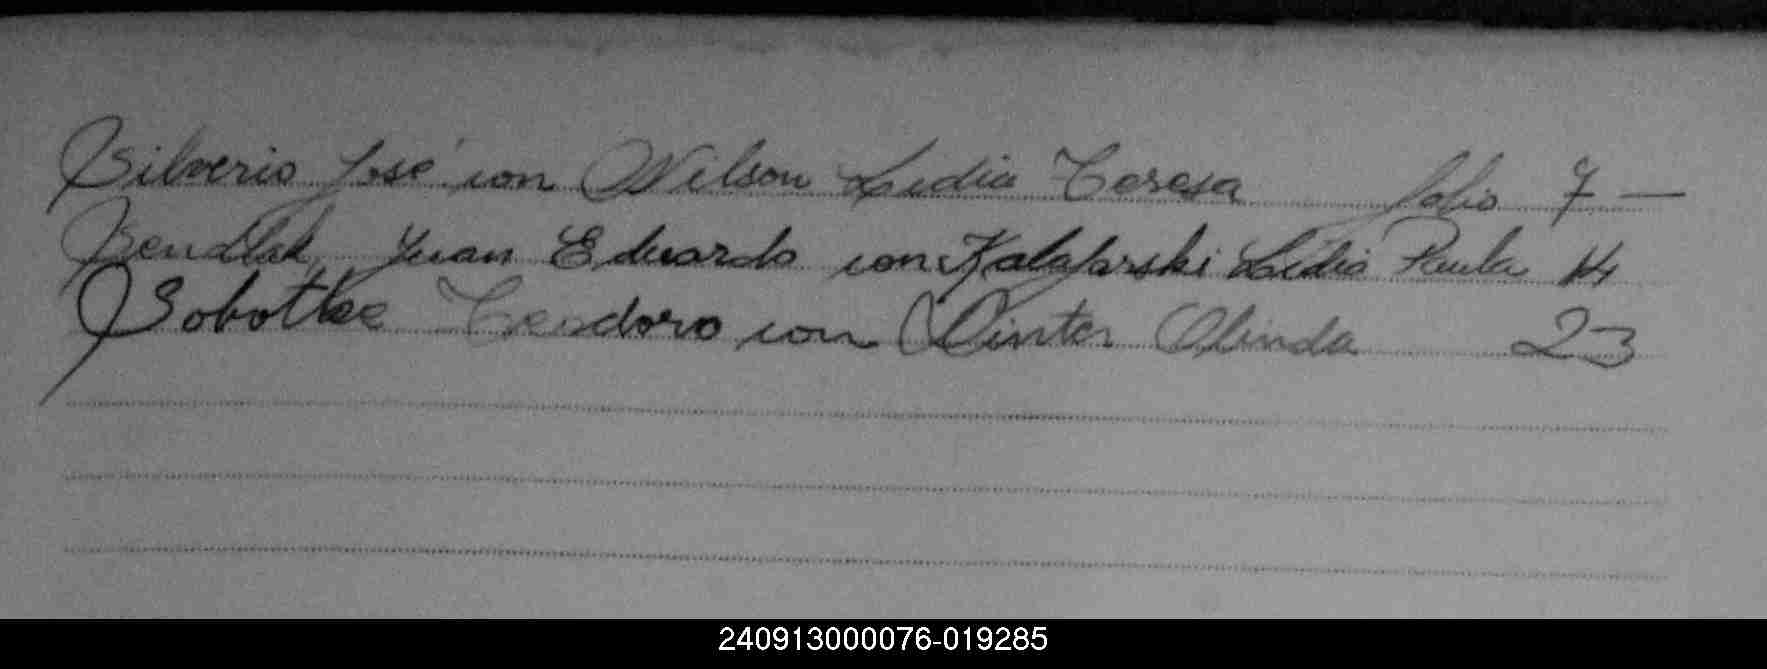 Silverio José con Nilson Lidia Teresa folio 7 —
Sendlak, Juan Eduardo con Kalafarski Lidia Paula 14
Sobottke Teodoro con Winter Olinda 23
240913000076-019285